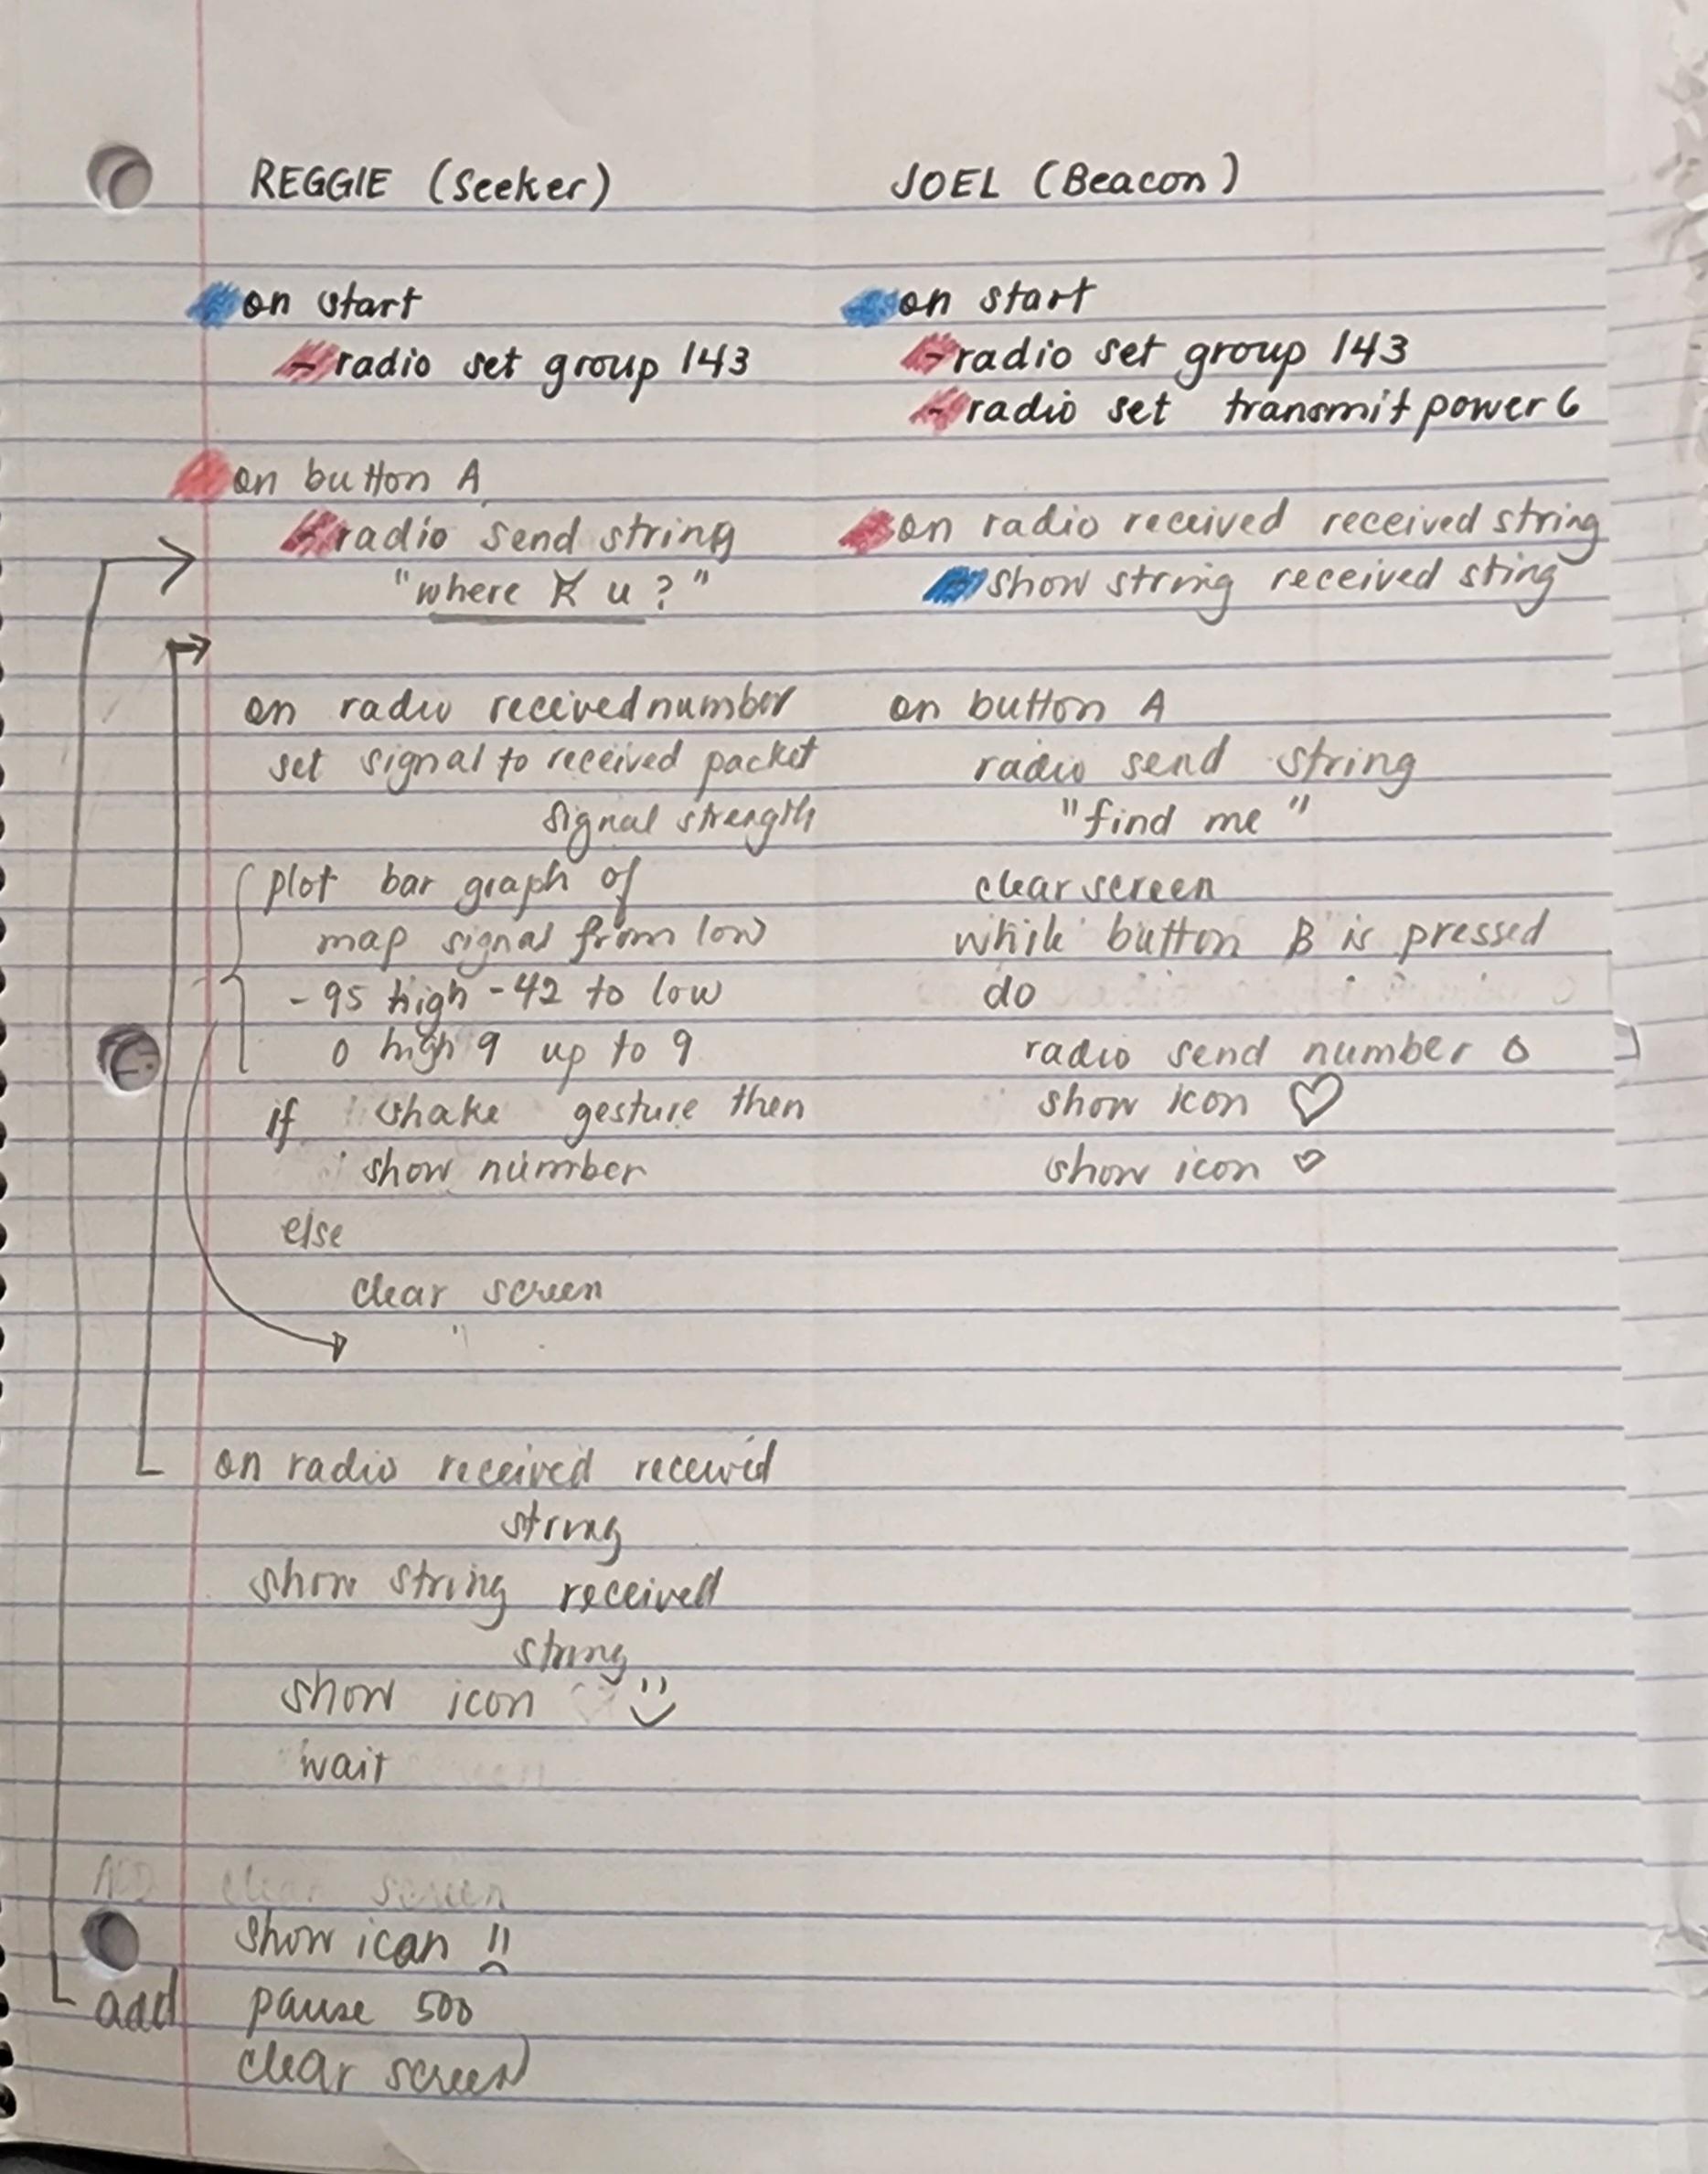 REGGIE (Seeker)
on start
- radio set group 143
on button A
- radio send string
"where R u?"
on radio received number
set signal to received packet
signal strength
plot bar graph of
map signal from low
-95 high -42 to low
0 high 9 up to 9
if shake gesture then
show number
else
clear screen
on radio received received
string
show string received
string
show icon
wait
clear screen
show icon
add pause 500
clear screen
JOEL (Beacon)
on start
- radio set group 143
- radio set transmit power 6
on radio received received string
- show string received sting
on button A
radio send string
"find me"
clear screen
while button B is pressed
do
radio send number 0
show icon ♡
show icon ♡